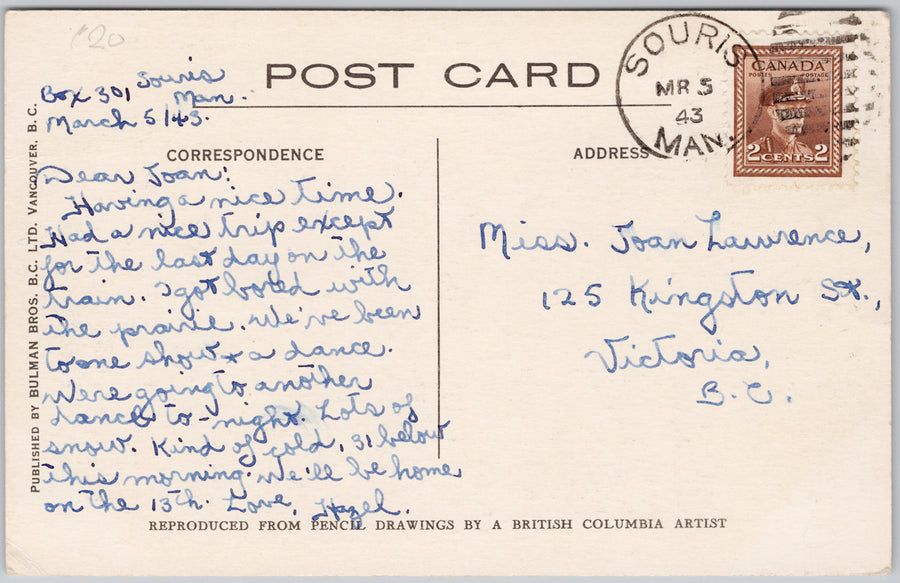 C20
Souris
Box 301 Man.
March 5/43.
POST CARD
SOURIS
MR 5
43
MAN.
CANADA
POSTES POSTAGE
2 CENTS 2
CORRESPONDENCE
ADDRESS
Dear Joan:
Having a nice time.
Had a nice trip except
for the last day on the
train. I got bored with
the prairie. We've been
to one show & a dance.
Were going to another
dance to-night. Lots of
snow. Kind of cold, 31 below
this morning. We'll be home
on the 13th. Love, Hazel.
Miss. Joan Lawrence,
125 Kingston St.,
Victoria,
B.C.
PUBLISHED BY BULMAN BROS. B.C. LTD. VANCOUVER, B.C.
REPRODUCED FROM PENCIL DRAWINGS BY A BRITISH COLUMBIA ARTIST